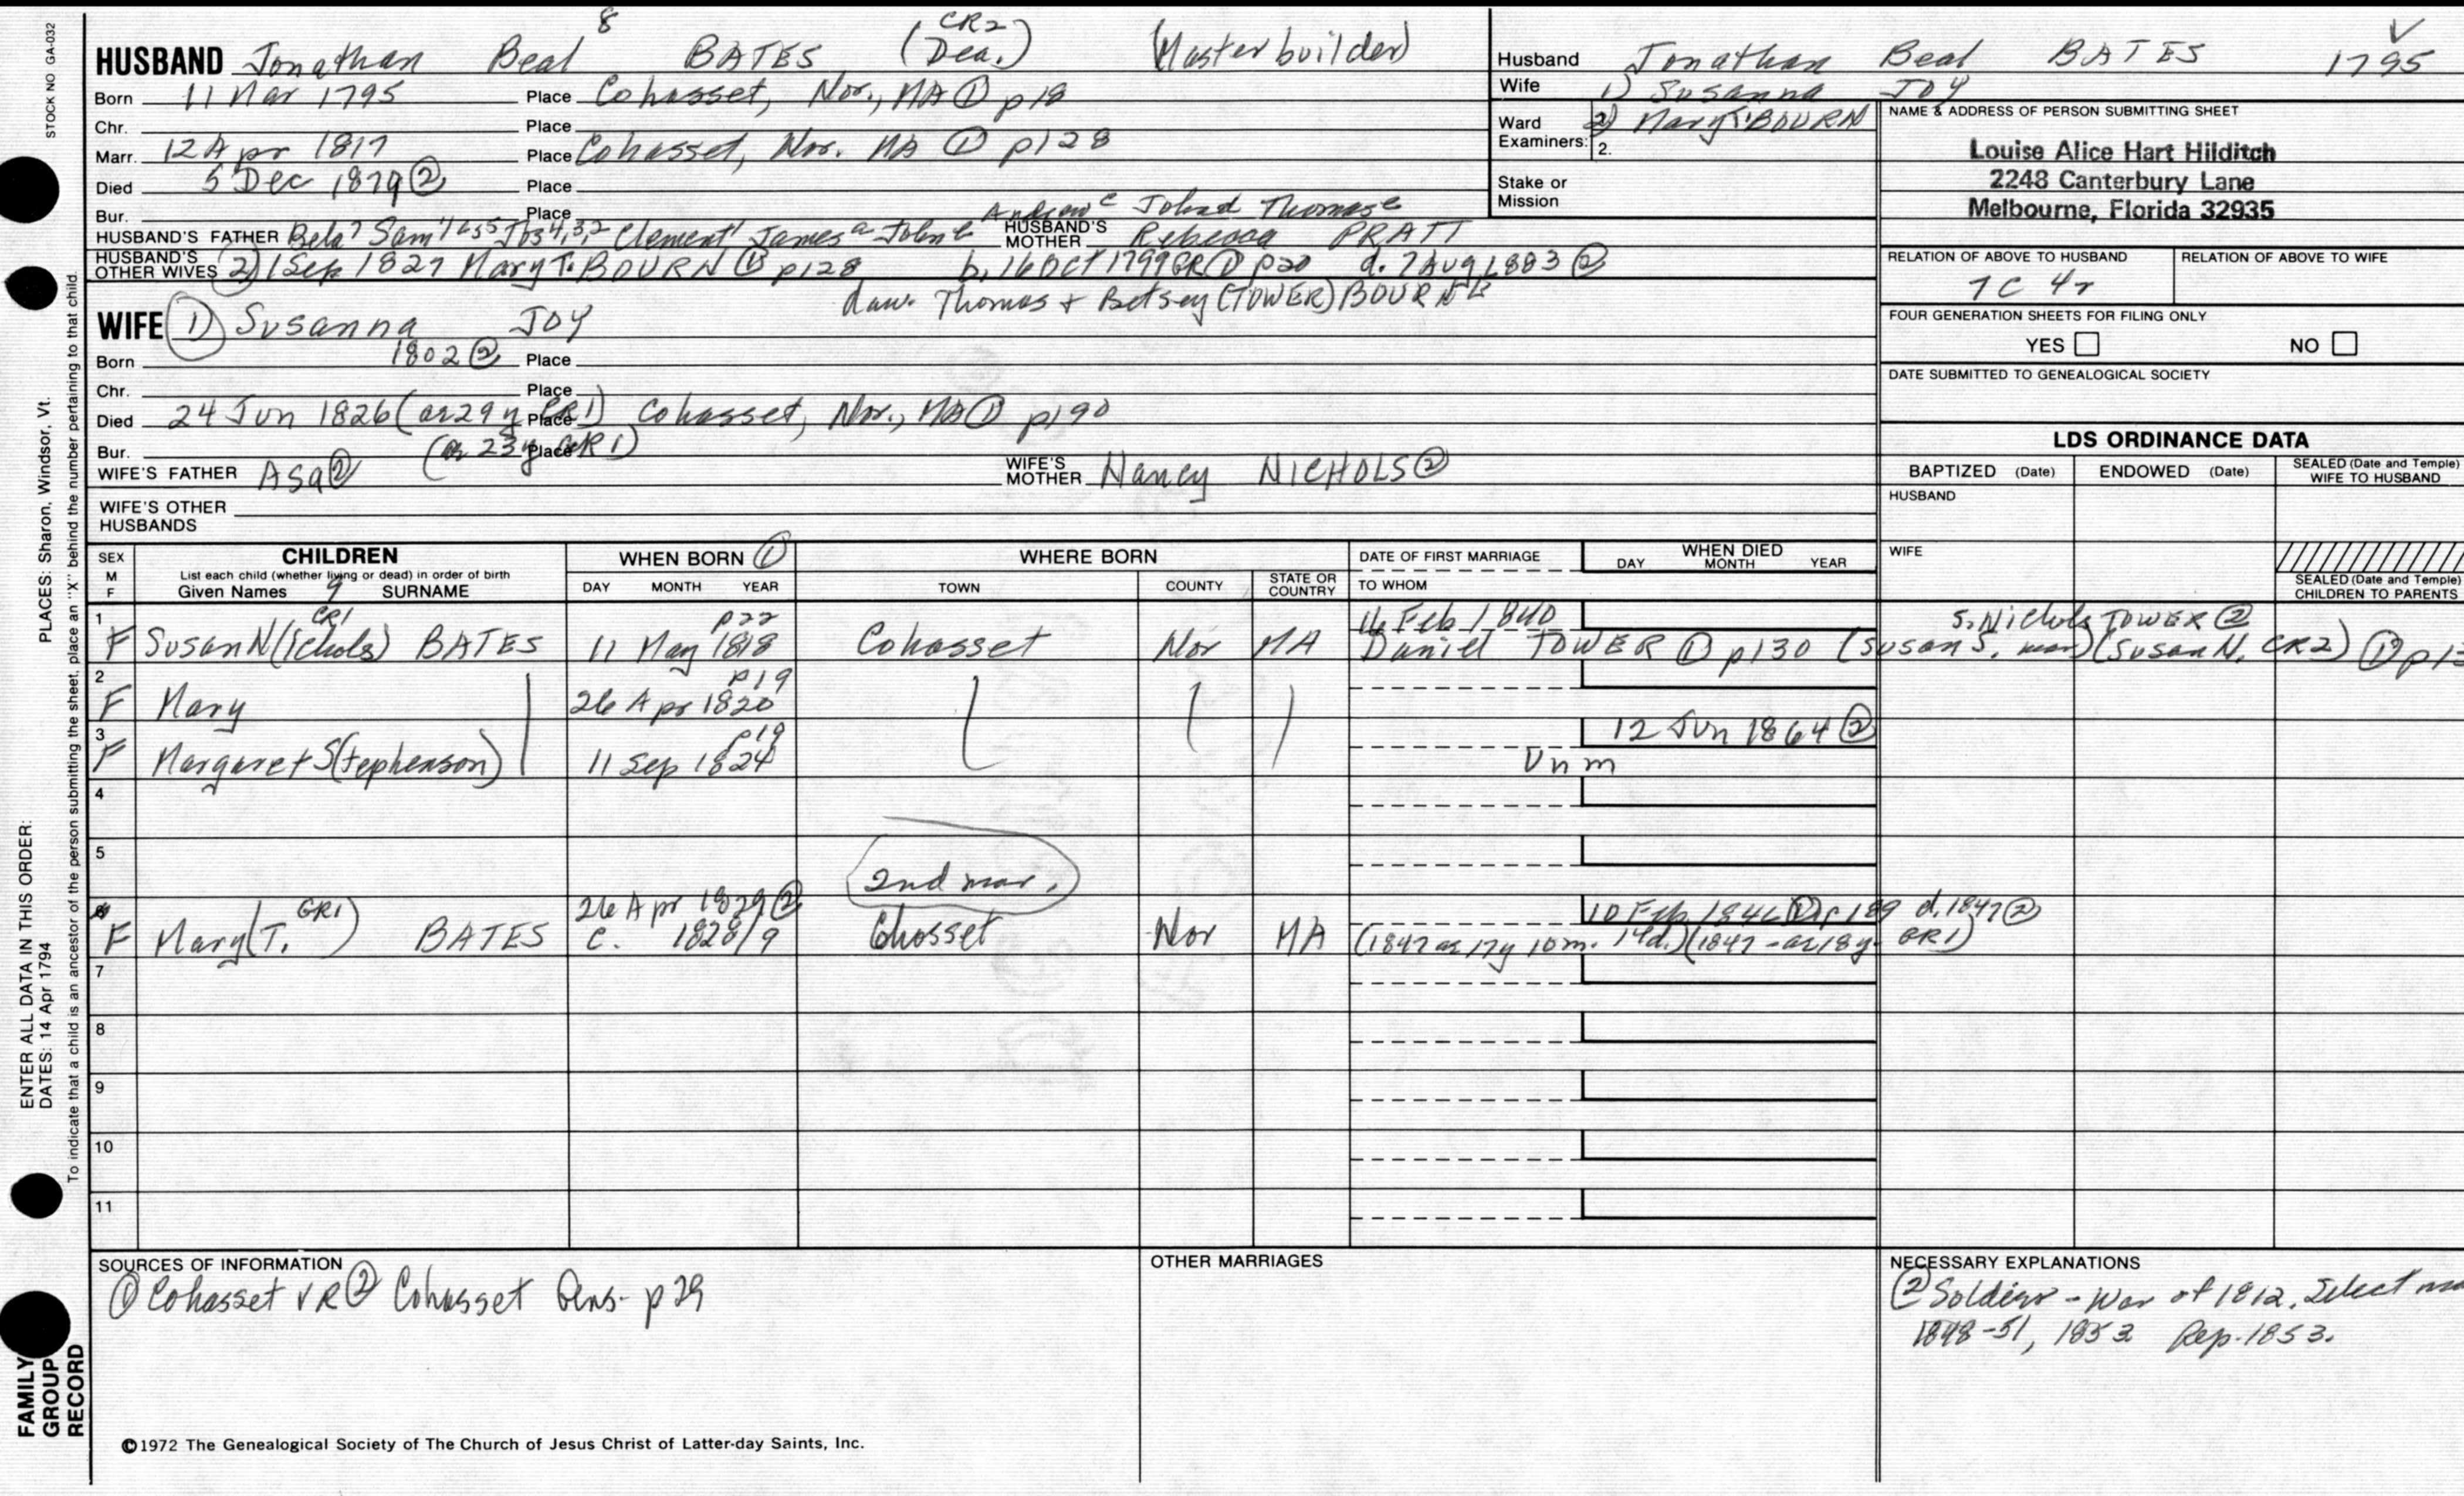 STOCK NO GA-032
HUSBAND Jonathan Beal 8 BATES (Dea.) CR2 (Masterbuilder)
Born 11 Mar 1795 Place Cohasset, Nor., MA ① p18
Chr. Place
Marr. 12 Apr 1817 Place Cohasset, Nor. MA ① p128
Died 5 Dec 1879 ② Place
Bur. Place
Andrew c John d Thomas e
HUSBAND'S FATHER Bela 7 Sam'l 6 5 Jos 4,3,2 Clement 1 James a John b HUSBAND'S MOTHER Rebecca PRATT
HUSBAND'S OTHER WIVES (2) 1 Sep 1827 Mary T. BOURN ① p128 b. 16 Oct 1799 GR1 ① p20 d. 7 Aug 1883 ②
dau. Thomas + Betsey (TOWER) BOURN
WIFE (1) Susanna JOY
Born 1802 ② Place
Chr. Place
Died 24 Jun 1826 (ae 29 y CR1) Place Cohasset, Nor., MA ① p190
Bur. (ae 23 y GR1) Place
WIFE'S FATHER Asa ② WIFE'S MOTHER Nancy NICHOLS ②
WIFE'S OTHER HUSBANDS
Husband Jonathan Beal BATES 1795
Wife 1) Susanna JOY
Ward 2) Mary T. BOURN
Examiners: 2.
Stake or Mission
NAME & ADDRESS OF PERSON SUBMITTING SHEET
Louise Alice Hart Hilditch
2248 Canterbury Lane
Melbourne, Florida 32935
RELATION OF ABOVE TO HUSBAND RELATION OF ABOVE TO WIFE
7C 4r
FOUR GENERATION SHEETS FOR FILING ONLY
YES NO
DATE SUBMITTED TO GENEALOGICAL SOCIETY
LDS ORDINANCE DATA
BAPTIZED (Date) ENDOWED (Date) SEALED (Date and Temple) WIFE TO HUSBAND
HUSBAND
WIFE
SEALED (Date and Temple) CHILDREN TO PARENTS
SEX CHILDREN WHEN BORN ① WHERE BORN DATE OF FIRST MARRIAGE WHEN DIED
M List each child (whether living or dead) in order of birth DAY MONTH YEAR TOWN COUNTY STATE OR COUNTRY TO WHOM DAY MONTH YEAR
F Given Names 9 SURNAME
1 CR1 p22 16 Feb 1840 S. Nichols TOWER ②
F Susan N(ichols) BATES 11 May 1818 Cohasset Nor MA Daniel TOWER ① p130 (Susan S. mar) (Susan N. CR2) ①
2 p19
F Mary 26 Apr 1820
3 p19 12 Jun 1864 ②
F Margaret S(tephenson) 11 Sep 1824 Unm
4
5
2nd mar.
GR1 26 Apr 1829 ② 10 Feb 1846 ① p189 d. 1847 ②
F Mary (T. BATES c. 1828/9 Cohosset Nor MA (1847 ae 17y 10m. 14d.) (1847 - ae 18y GR1)
7
8
9
10
11
SOURCES OF INFORMATION
① Cohasset VR ② Cohasset Gens- p29
OTHER MARRIAGES
NECESSARY EXPLANATIONS
② Soldier - War of 1812. Select
1848-51, 1852 Rep. 1853.
©1972 The Genealogical Society of The Church of Jesus Christ of Latter-day Saints, Inc.
ENTER ALL DATA IN THIS ORDER:
DATES: 14 Apr 1794
PLACES: Sharon, Windsor, Vt.
To indicate that a child is an ancestor of the person submitting the sheet, place an "X" behind the number pertaining to that child.
FAMILY
GROUP
RECORD